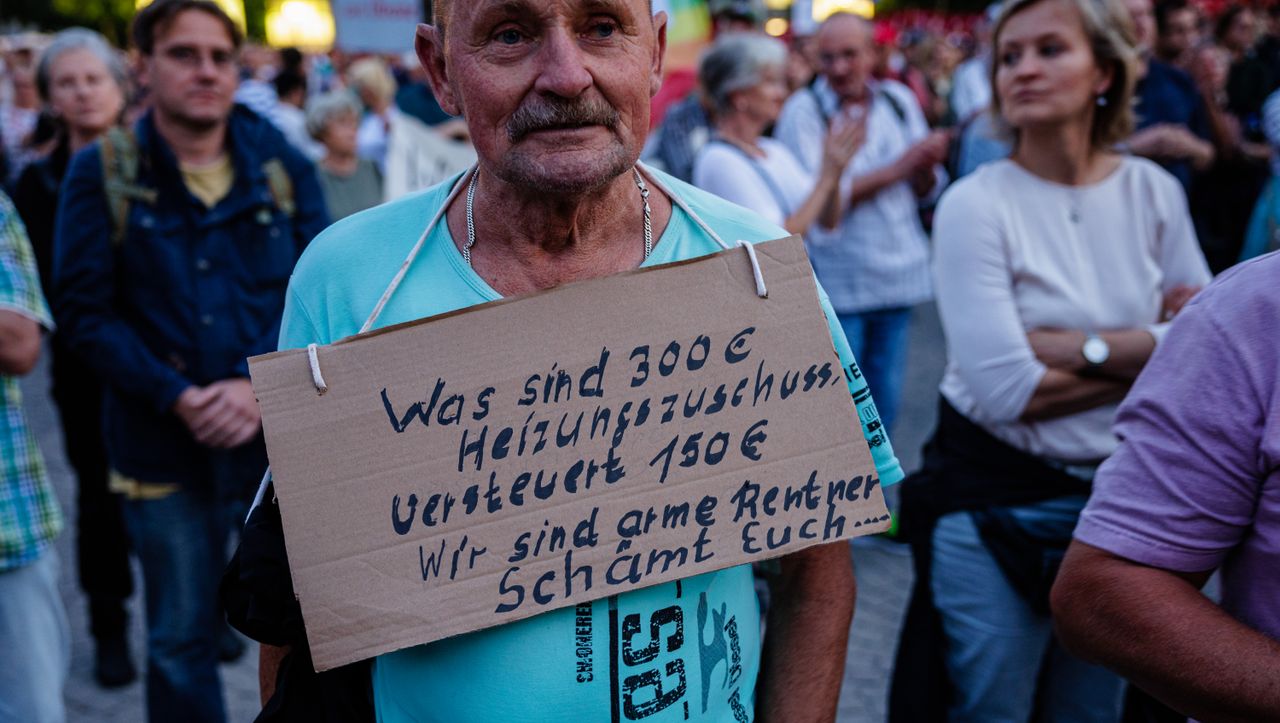 Was sind 300 €
Heizungszuschuss,
versteuert 150 €
Wir sind arme Rentner
Schämt Euch.....